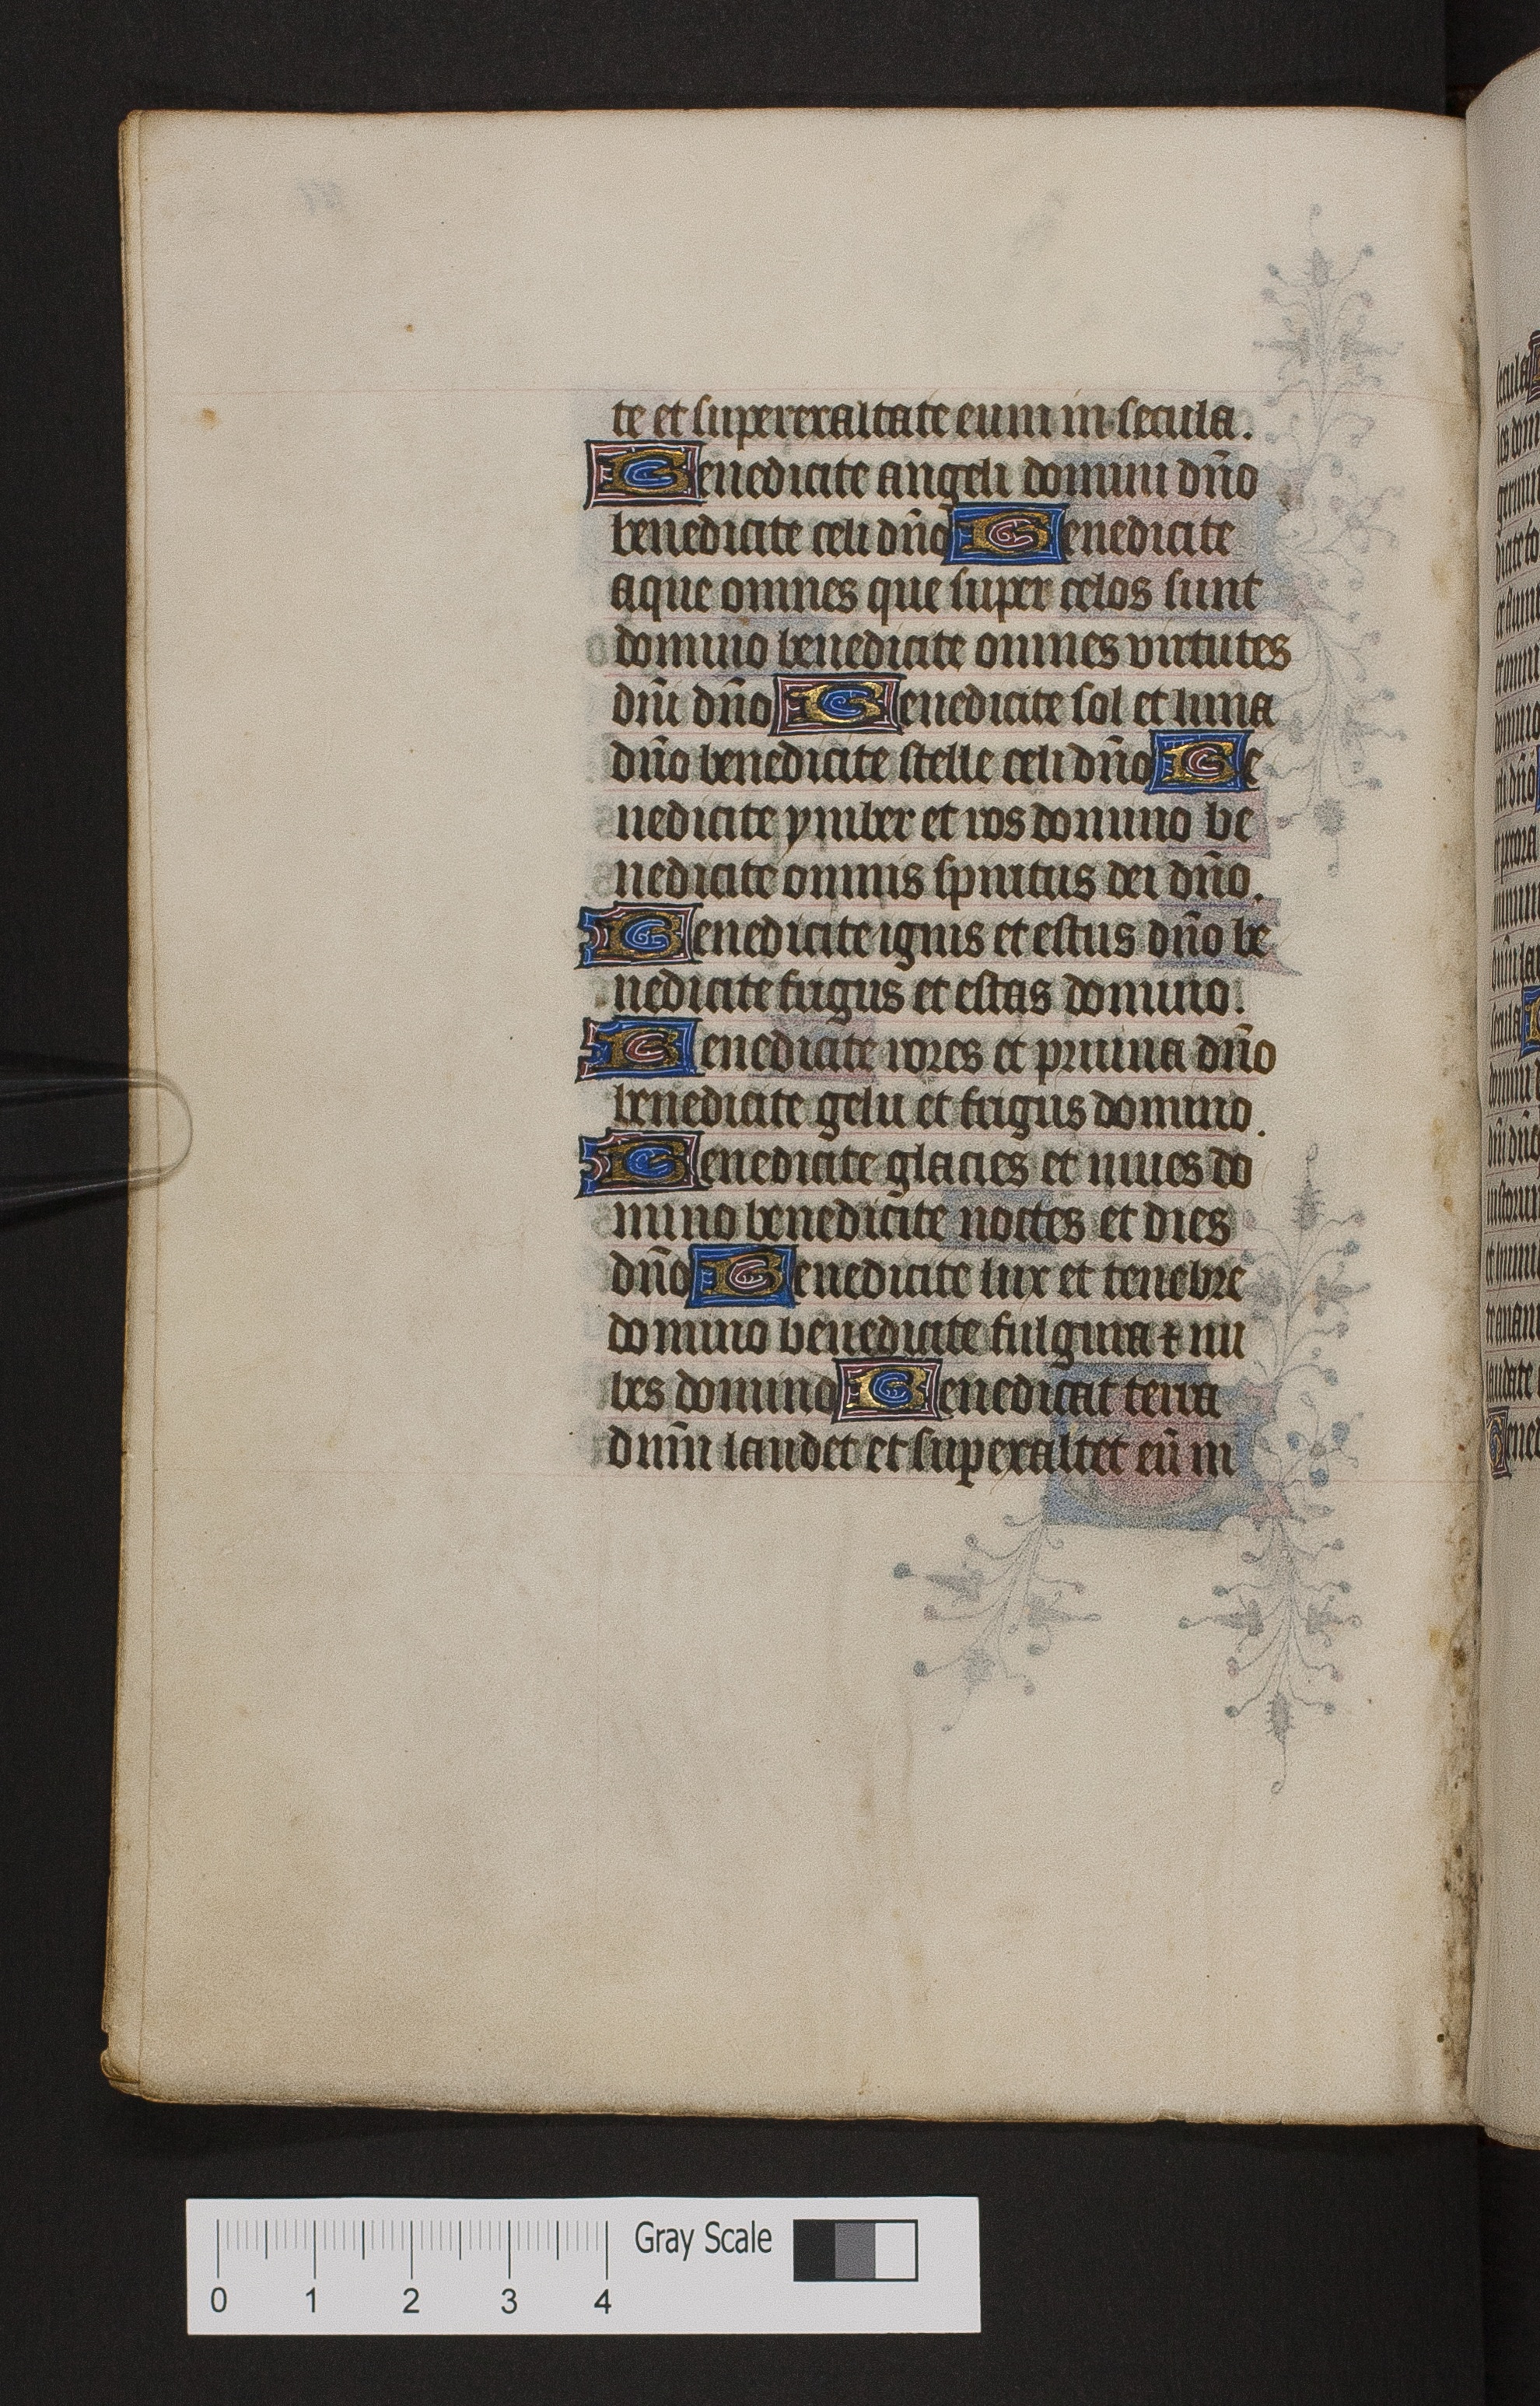 te et superexaltate eum in secula.
Benedicite angeli domini dño
benedicite celi dño Benedicite
aque omnes que super celos sunt
domino benedicite omnes virtutes
dñi dño Benedicite sol et luna
dño benedicite stelle celi dño Be
nedicite ymber et ros domino be
nedicite omnis spiritus dei dño.
Benedicite ignis et estus dño be
nedicite frigus et estas domino.
Benedicite rores et pruina dño
benedicite gelu et frigus domino.
Benedicite glacies et niues do
mino benedicite noctes et dies
dño Benedicite lux et tenebre
domino benedicite fulgura & nu
bes domino Benedicat terra
dñm laudet et superexaltet eũ in
Gray Scale
0 1 2 3 4